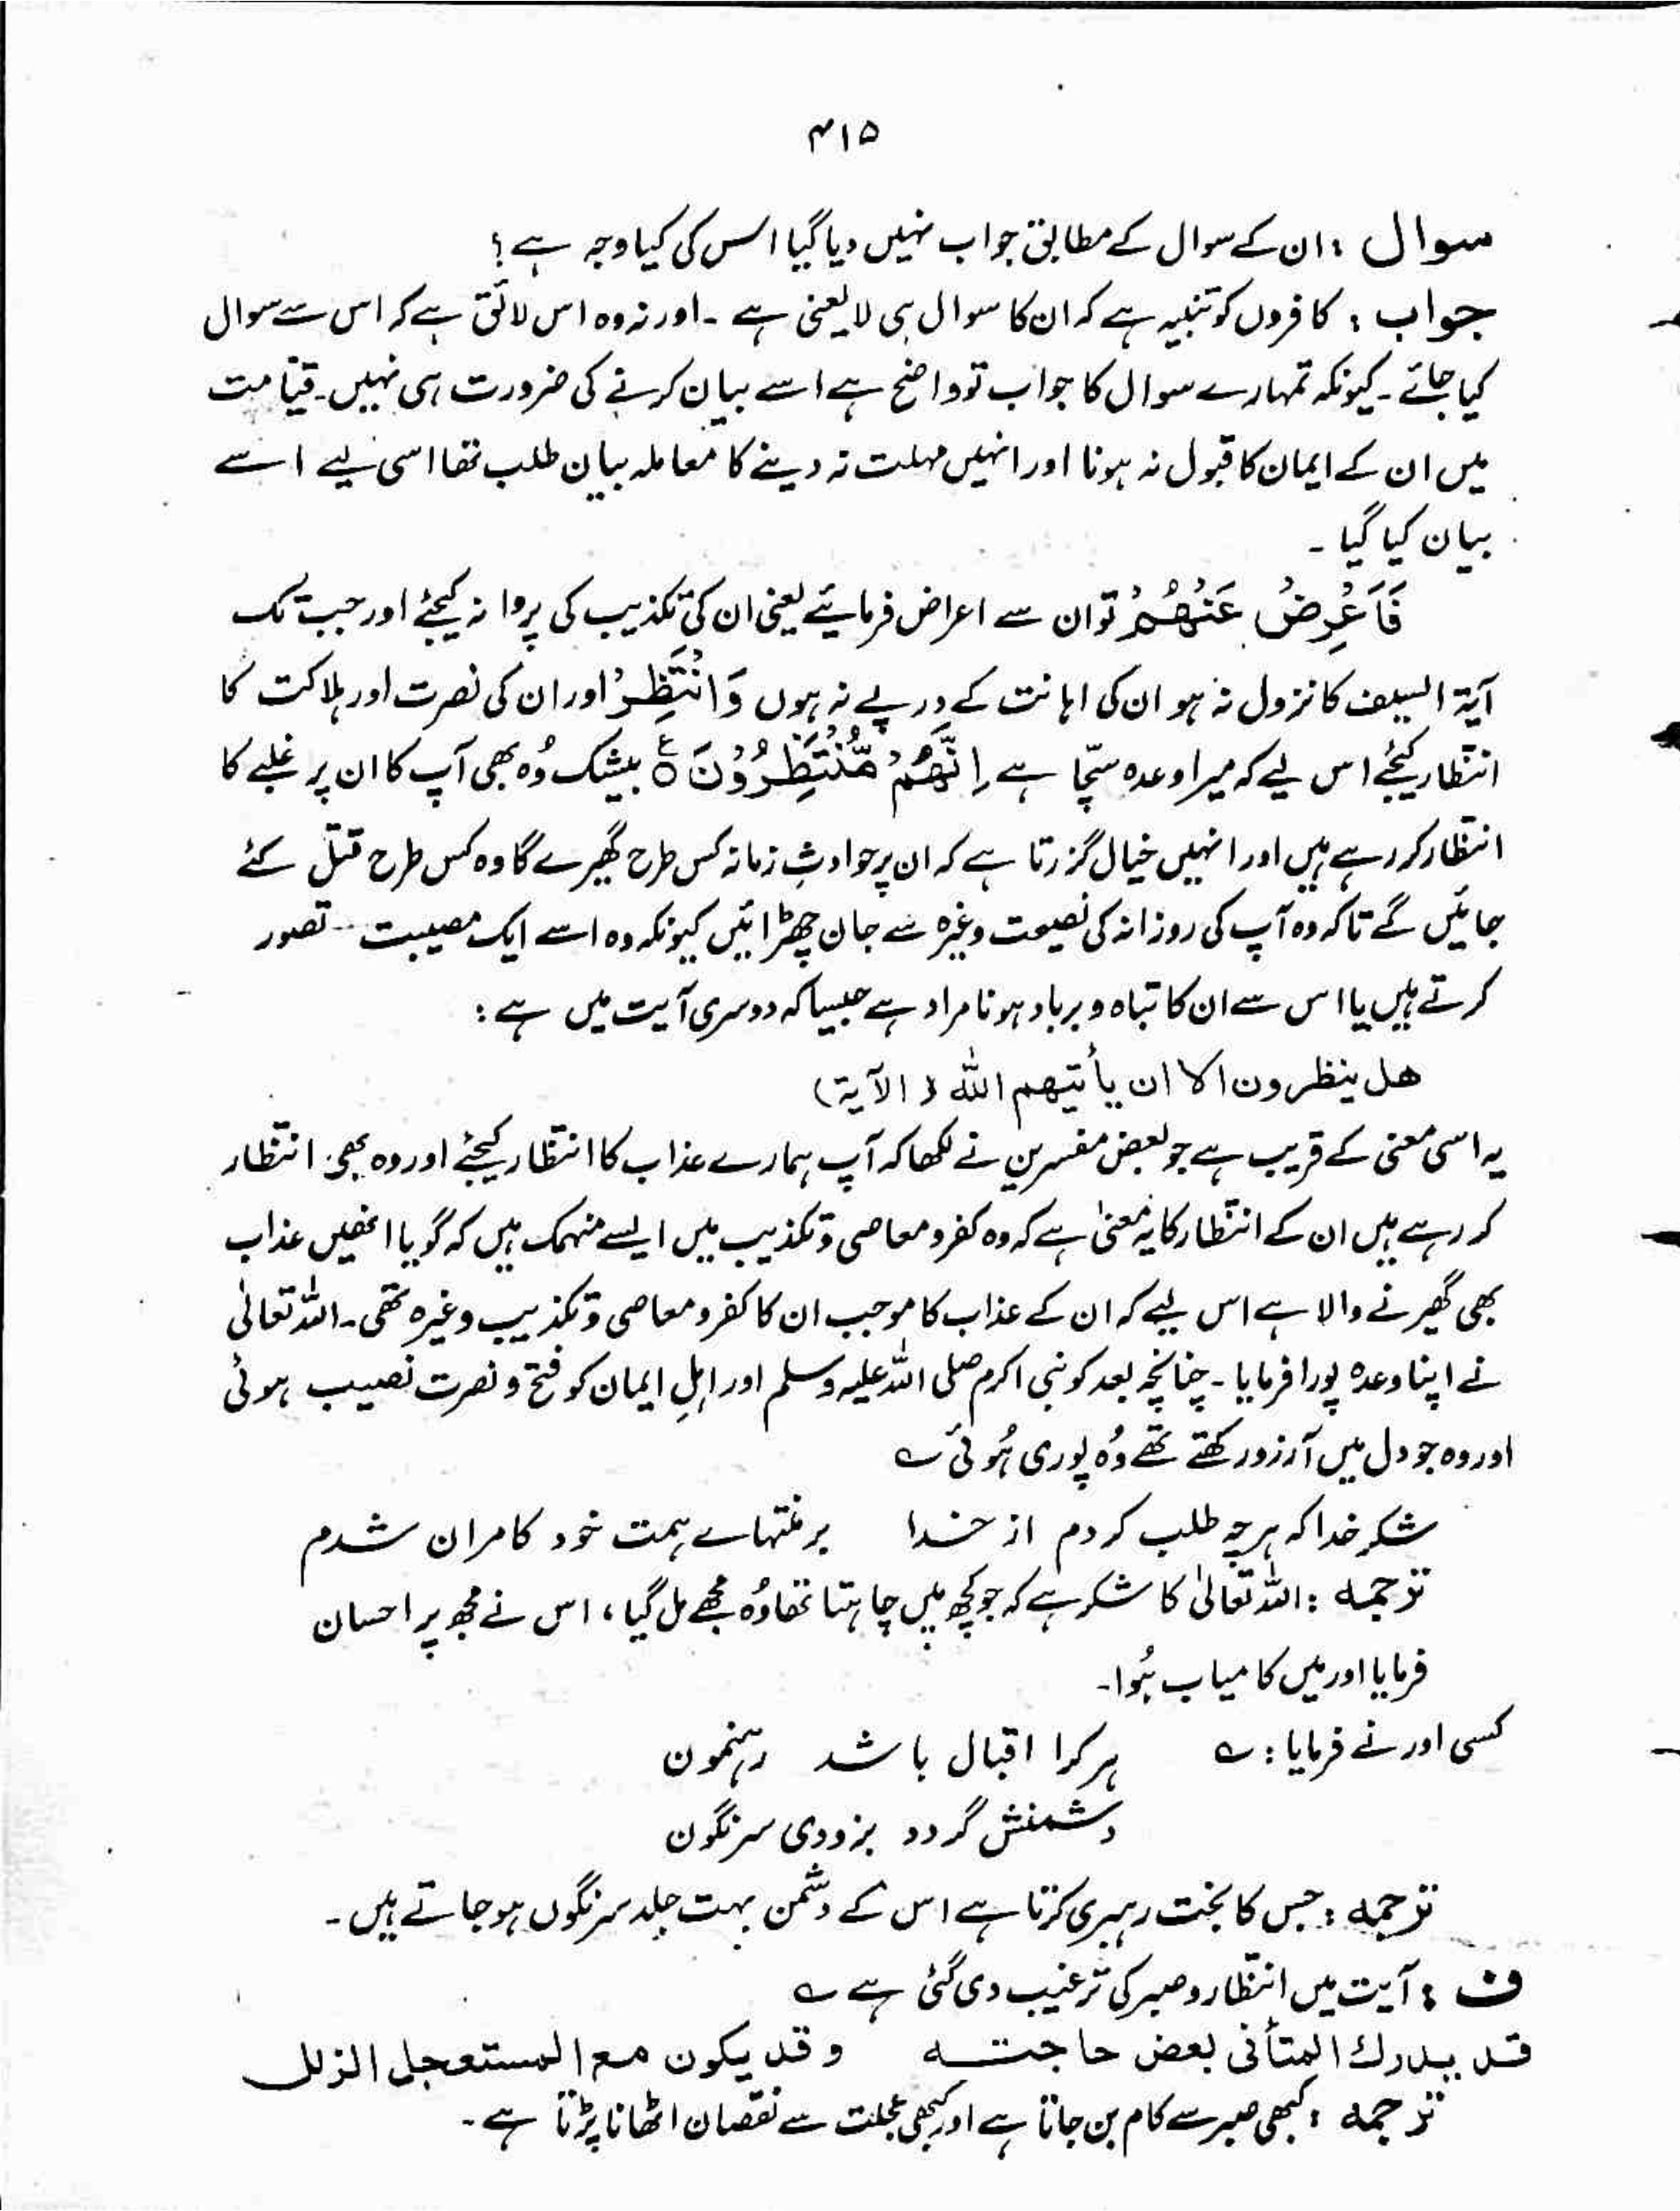 ۴۱۵
سوال : ان کے سوال کے مطابق جواب نہیں دیا گیا اس کی کیا وجہ ہے ؟
جواب : کافروں کو تنبیہ ہے کہ ان کا سوال ہی لا یعنی ہے ۔ اور نہ وہ اس لائق ہے کہ اس سے سوال
کیا جائے ۔ کیونکہ تمہارے سوال کا جواب تو واضح ہے اسے بیان کرنے کی ضرورت ہی نہیں ۔ قیامت
میں ان کے ایمان کا قبول نہ ہونا اور انہیں مہلت نہ دینے کا معاملہ بیان طلب تھا اسی لیے اسے
بیان کیا گیا ۔
فَاَعْرِضْ عَنْهُمْ تو ان سے اعراض فرمائیے یعنی ان کی تکذیب کی پروا نہ کیجئے اور جب تک
آیۃ السیف کا نزول نہ ہو ان کی اہانت کے درپے نہ ہوں وَانْتَظِرْ اور ان کی نصرت اور ہلاکت کا
انتظار کیجئے اس لیے کہ میرا وعدہ سچّا ہے اِنَّهُمْ مُّنْتَظِرُوْنَ ○ ع بیشک وُہ بھی آپ کا ان پر غلبے کا
انتظار کر رہے ہیں اور انہیں خیال گزرتا ہے کہ ان پر حوادثِ زمانہ کس طرح گھیرے گا وہ کس طرح قتل کئے
جائیں گے تاکہ وہ آپ کی روزانہ کی نصیحت وغیرہ سے جان چھڑائیں کیونکہ وہ اسے ایک مصیبت تصور
کرتے ہیں یا اس سے ان کا تباہ و برباد ہونا مراد ہے جیسا کہ دوسری آیت میں ہے :
هل ينظرون الا ان يأتيهم الله ( الآية )
یہ اسی معنی کے قریب ہے جو بعض مفسرین نے لکھا کہ آپ ہمارے عذاب کا انتظار کیجئے اور وہ بھی انتظار
کر رہے ہیں ان کے انتظار کا یہ معنیٰ ہے کہ وہ کفر و معاصی و تکذیب میں ایسے منہمک ہیں کہ گویا انھیں عذاب
بھی گھیرنے والا ہے اس لیے کہ ان کے عذاب کا موجب ان کا کفر و معاصی و تکذیب وغیرہ تھی ۔ اللہ تعالٰی
نے اپنا وعدہ پورا فرمایا ۔ چنانچہ بعد کو نبی اکرم صلی اللہ علیہ وسلم اور اہلِ ایمان کو فتح و نصرت نصیب ہوئی
اور وہ جو دل میں آرزو رکھتے تھے وُہ پوری ہُوئی ؎
شکرِ خدا کہ ہر چہ طلب کردم از خدا بر منتہاے ہمت خود کامران شدم
ترجمہ : اللہ تعالیٰ کا شکر ہے کہ جو کچھ میں چاہتا تھا وُہ مجھے مل گیا ، اس نے مجھ پر احسان
فرمایا اور میں کامیاب ہُوا ۔
کسی اور نے فرمایا : ؎ ہر کرا اقبال باشد رہنمون
دشمنش گردد بزودی سرنگون
ترجمہ : جس کا بخت رہبری کرتا ہے اس کے دشمن بہت جلد سرنگوں ہو جاتے ہیں ۔
ف : آیت میں انتظار و صبر کی ترغیب دی گئی ہے ؎
قد يدرك المتأني بعض حاجته وقد يكون مع المستعجل الزلل
ترجمہ : کبھی صبر سے کام بن جاتا ہے اور کبھی عجلت سے نقصان اٹھانا پڑتا ہے ۔